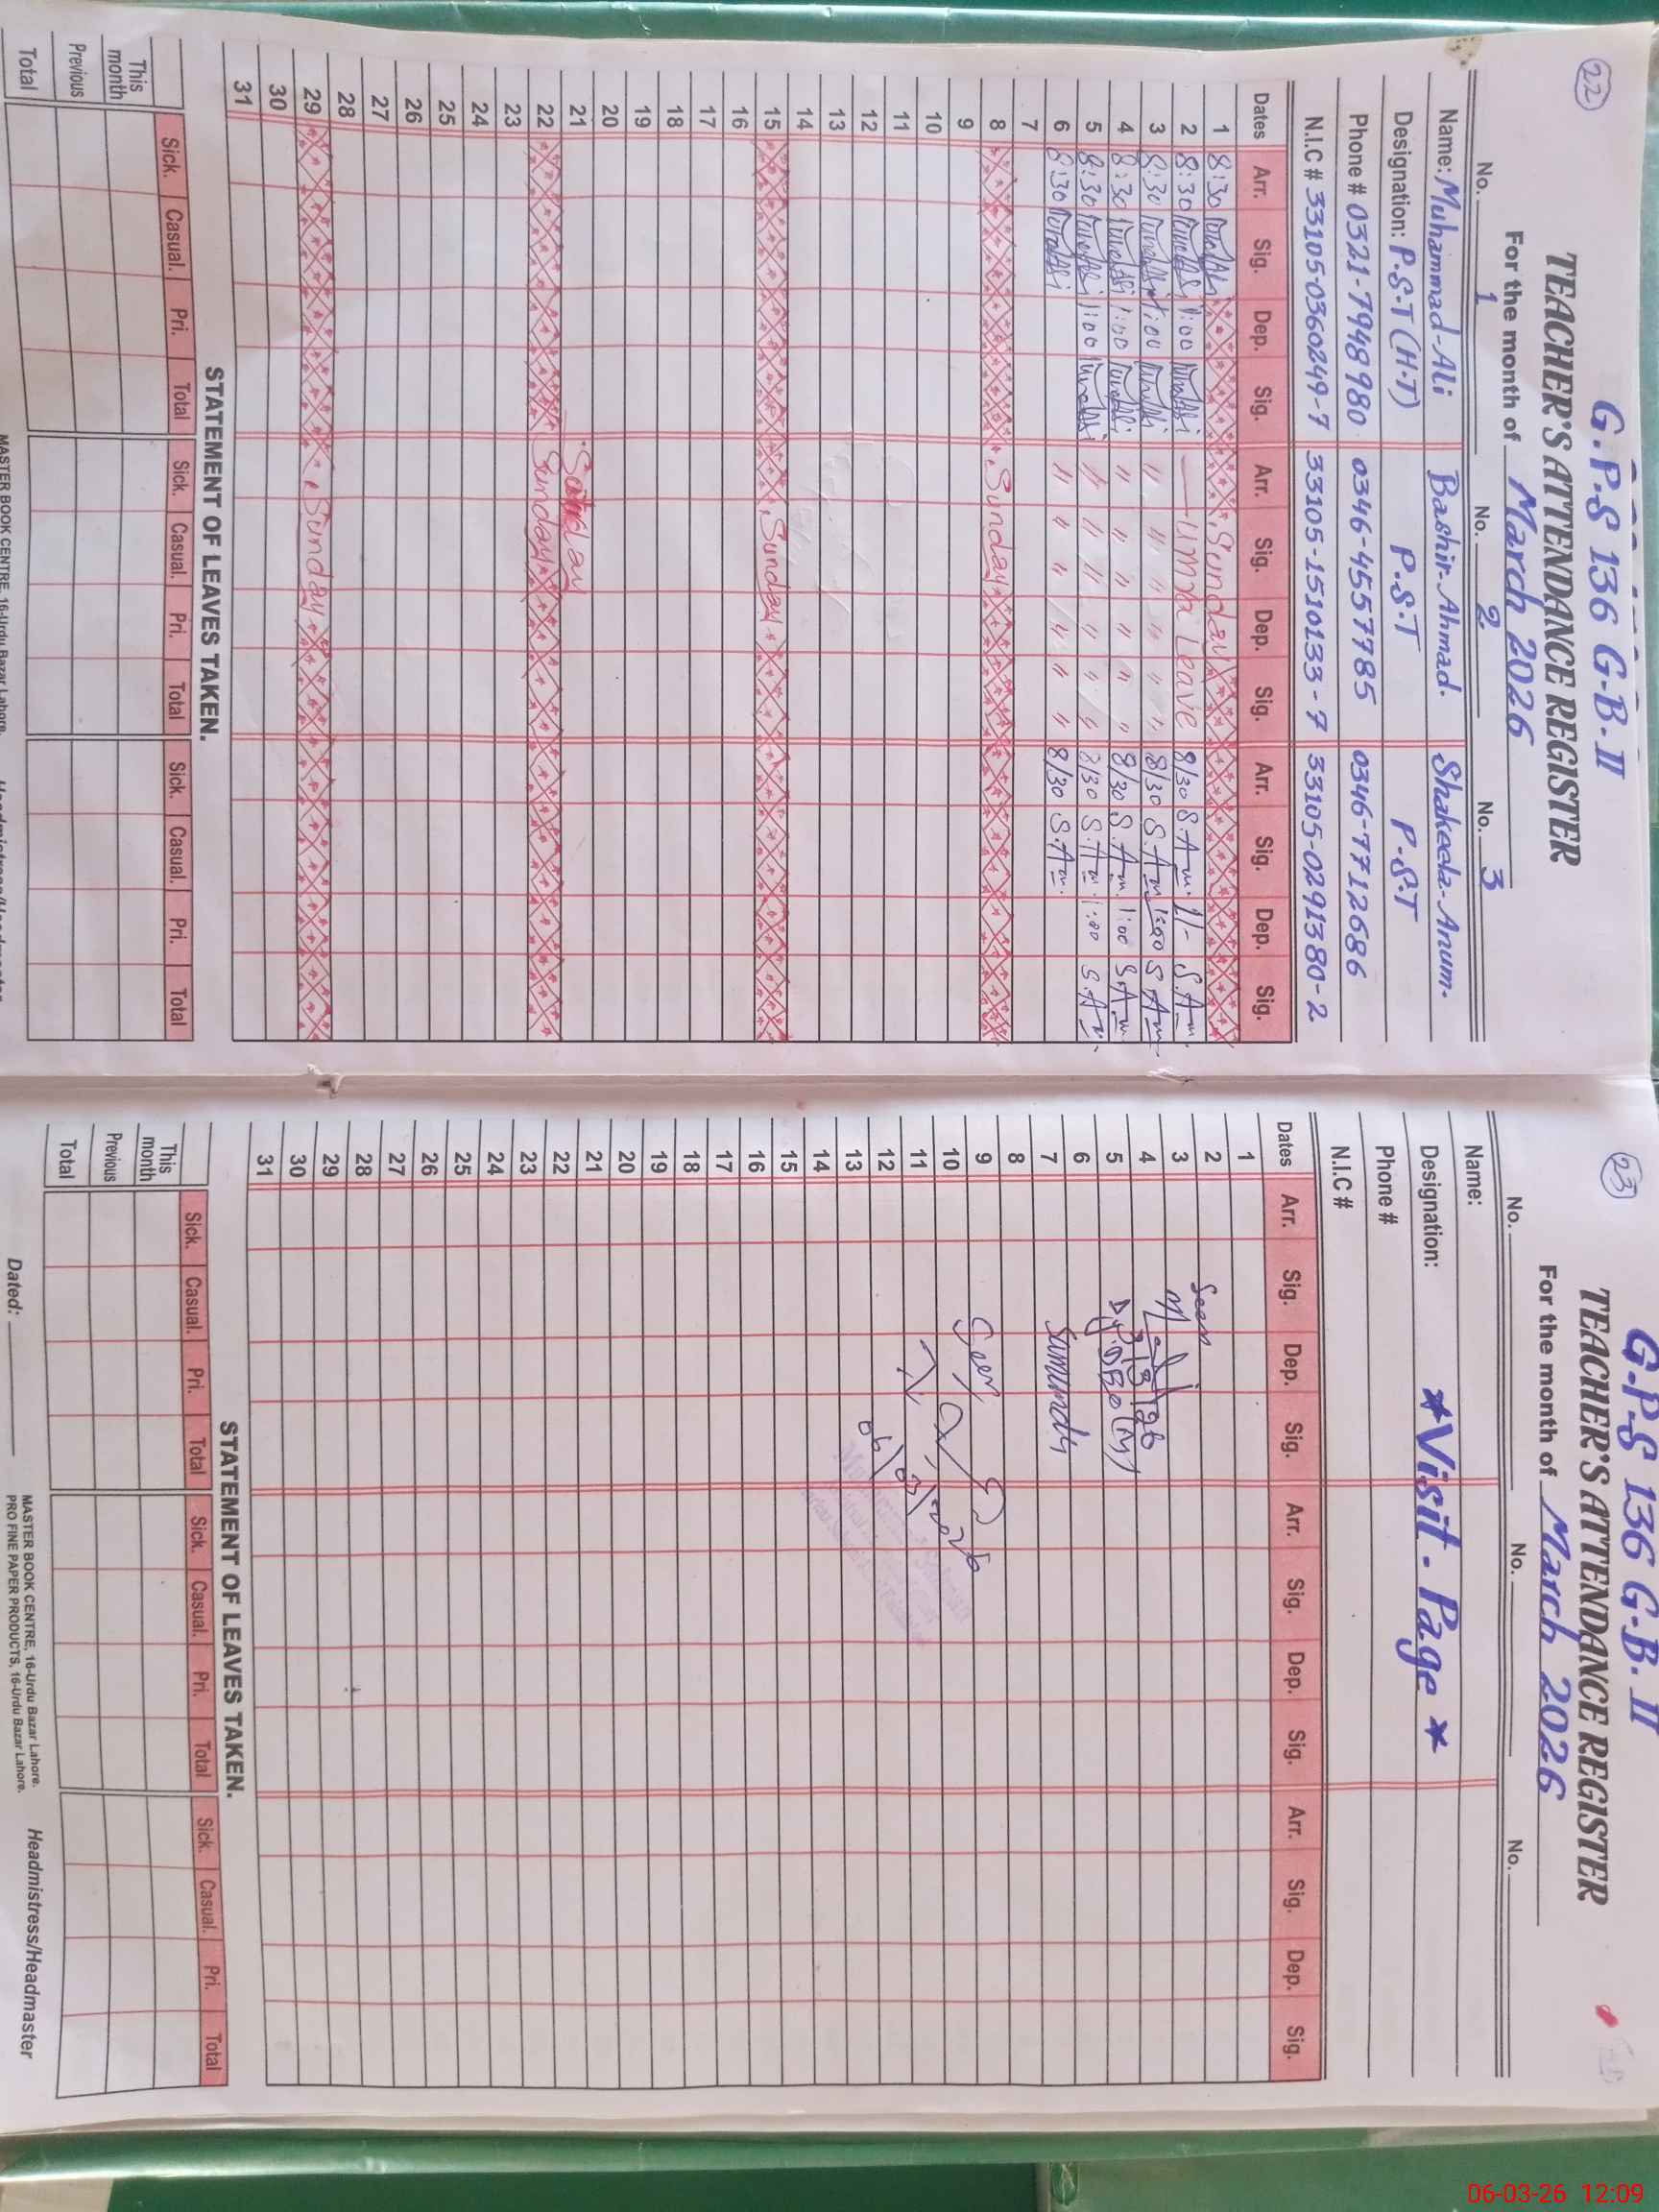 22
G.P.S 136 G.B.II
TEACHER'S ATTENDANCE REGISTER
For the month of March 2026
No. 1 No. 2 No. 3
Name: Muhammad-Ali Bashir-Ahmad. Shakeela-Anum-
Designation: P.S.T (H.T) P.S.T P.S.T
Phone # 0321-7948980 0346-4557785 0346-7712686
N.I.C # 33105-0360249-7 33105-1510133-7 33105-0291380-2
Dates Arr. Sig. Dep. Sig. Arr. Sig. Dep. Sig. Arr. Sig. Dep. Sig.
1 8:30 Sunday
2 8:30 1:00 Leave 8/30 S.Am. 1/- S.Am.
3 8:30 1:00 " " " " 8/30 S.Am 1:00 S.Am
4 8:30 1:00 " " " " 8/30 S.Am. 1:00 S.Am.
5 8:30 1:00 " " " " 8/30 S.Am. 1:00 S.Am.
6 8:30 " " " " 8/30 S.Am.
7
8 Sunday
9
10
11
12
13
14
15 Sunday
16
17
18
19
20
21
22 Sunday
23
24
25
26
27
28
29 Sunday
30
31
STATEMENT OF LEAVES TAKEN.
Sick. Casual. Pri. Total Sick. Casual. Pri. Total Sick. Casual. Pri. Total
This month
Previous
Total
MASTER BOOK CENTRE, 16-Urdu Bazar Lahore.
23
G.P.S 136 G.B.II
TEACHER'S ATTENDANCE REGISTER
For the month of March 2026
No. No. No.
Name:
Designation: *Visit. Page*
Phone #
N.I.C #
Dates Arr. Sig. Dep. Sig. Arr. Sig. Dep. Sig. Arr. Sig. Dep. Sig.
1
2 Seen
3
4 3/3/26
5 Dy. DEO (M)
6
7
8
9 Seen
10
11
12
13
14
15
16
17
18
19
20
21
22
23
24
25
26
27
28
29
30
31
STATEMENT OF LEAVES TAKEN.
Sick. Casual. Pri. Total Sick. Casual. Pri. Total Sick. Casual. Pri. Total
This month
Previous
Total
MASTER BOOK CENTRE, 16-Urdu Bazar Lahore.
PRO FINE PAPER PRODUCTS, 16-Urdu Bazar Lahore.
Dated: Headmistress/Headmaster
06-03-26 12:09